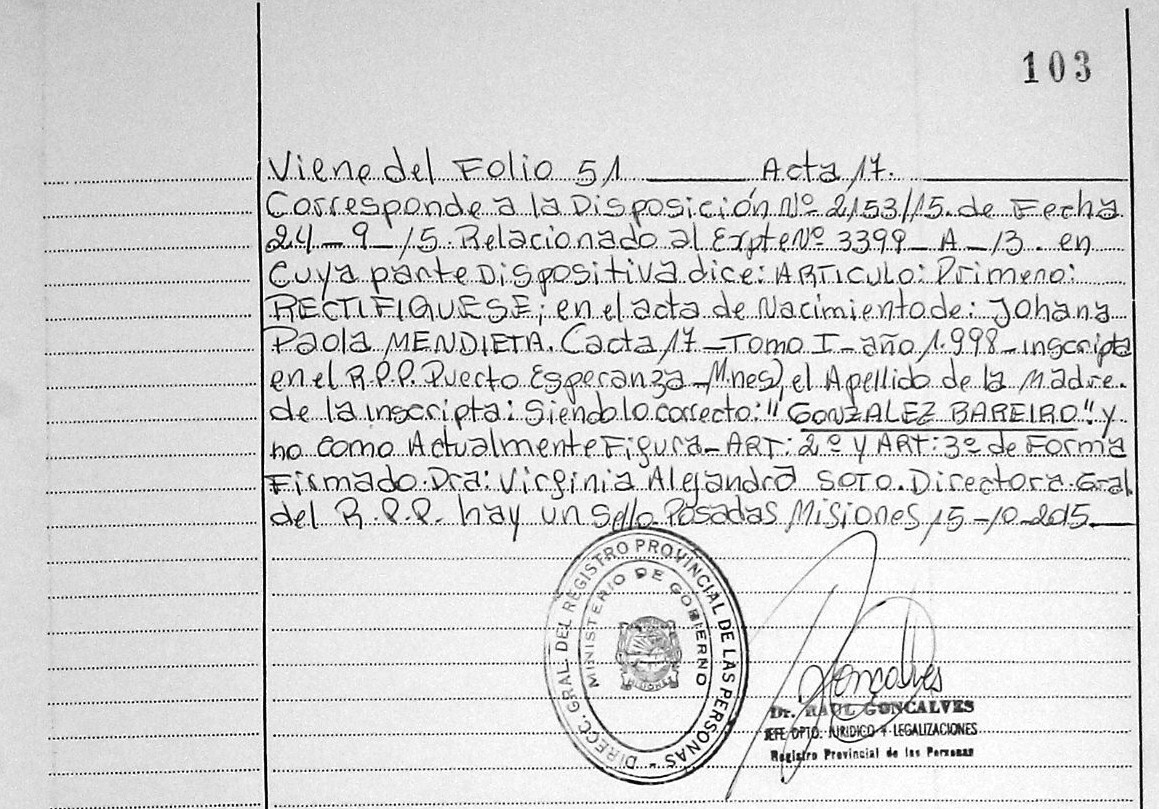 103
Viene del Folio 51 Acta 17.
Corresponde a la Disposición Nº 2153/15. de Fecha
24-9-15. Relacionado al Expte Nº 3399-A-13. en
Cuya parte Dispositiva dice: ARTICULO: Primero:
RECTIFIQUESE; en el acta de Nacimiento de: Johana
Paola MENDIETA. (acta 17-Tomo I-año 1.998-inscripta
en el R.P.P. Puerto Esperanza-Mnes), el Apellido de la Madre.
de la inscripta: Siendo lo correcto: "GONZALEZ BAREIRO" y
no como Actualmente Figura-ART: 2º y ART: 3º de Forma
Firmado. Dra: Virginia Alejandra SOTO. Directora. Gral
del R.P.P. hay un Sello. Posadas Misiones 15-10-2015.
DIRECC. GRAL. DEL REGISTRO PROVINCIAL DE LAS PERSONAS -
MINISTERIO DE GOBIERNO
MISIONES
Gonçalves
Dr. RAUL GONCALVES
JEFE DPTO. JURIDICO Y LEGALIZACIONES
Registro Provincial de las Personas